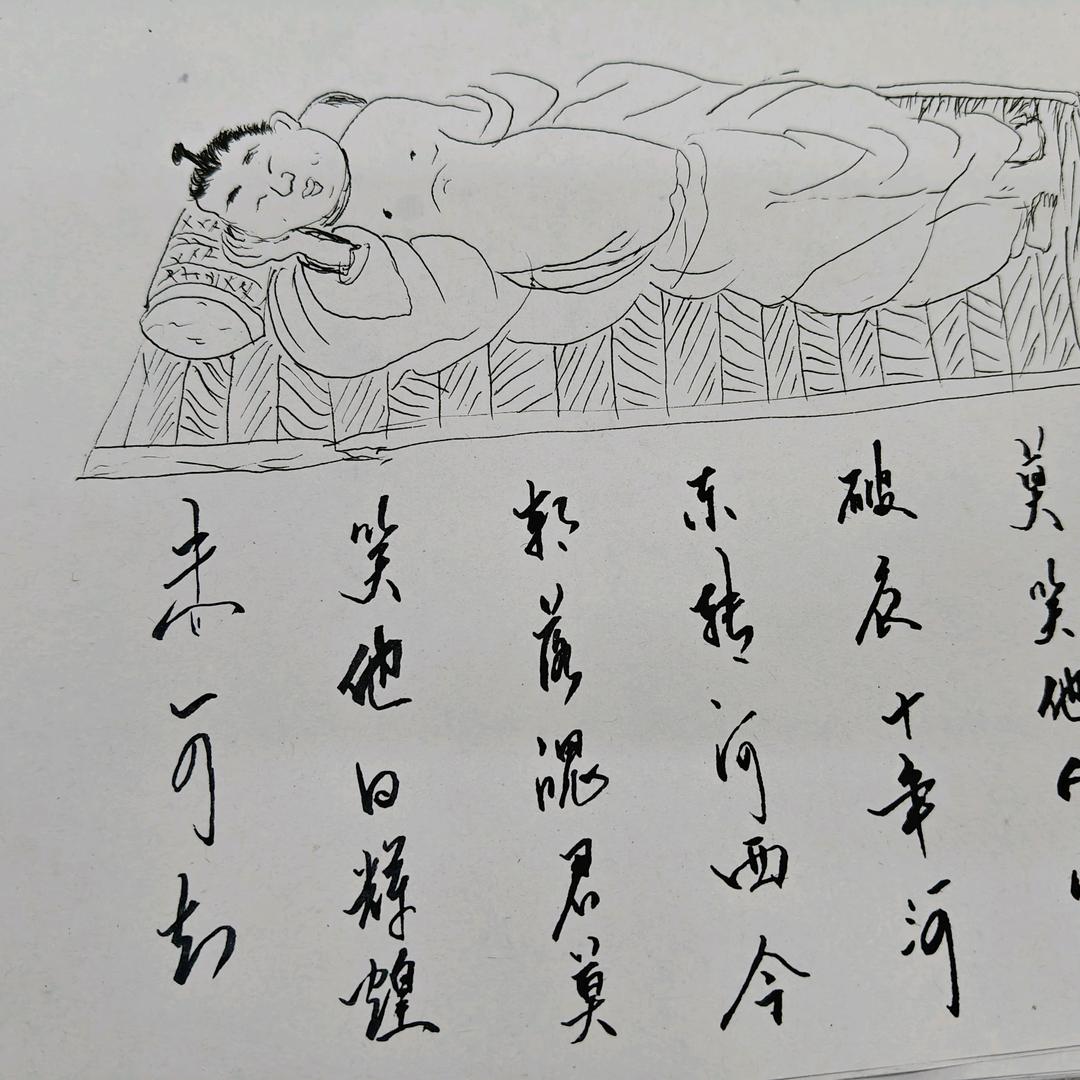 莫笑他
破衣十年河
东转河西今
朝落魄君莫
笑他日辉煌
未可知